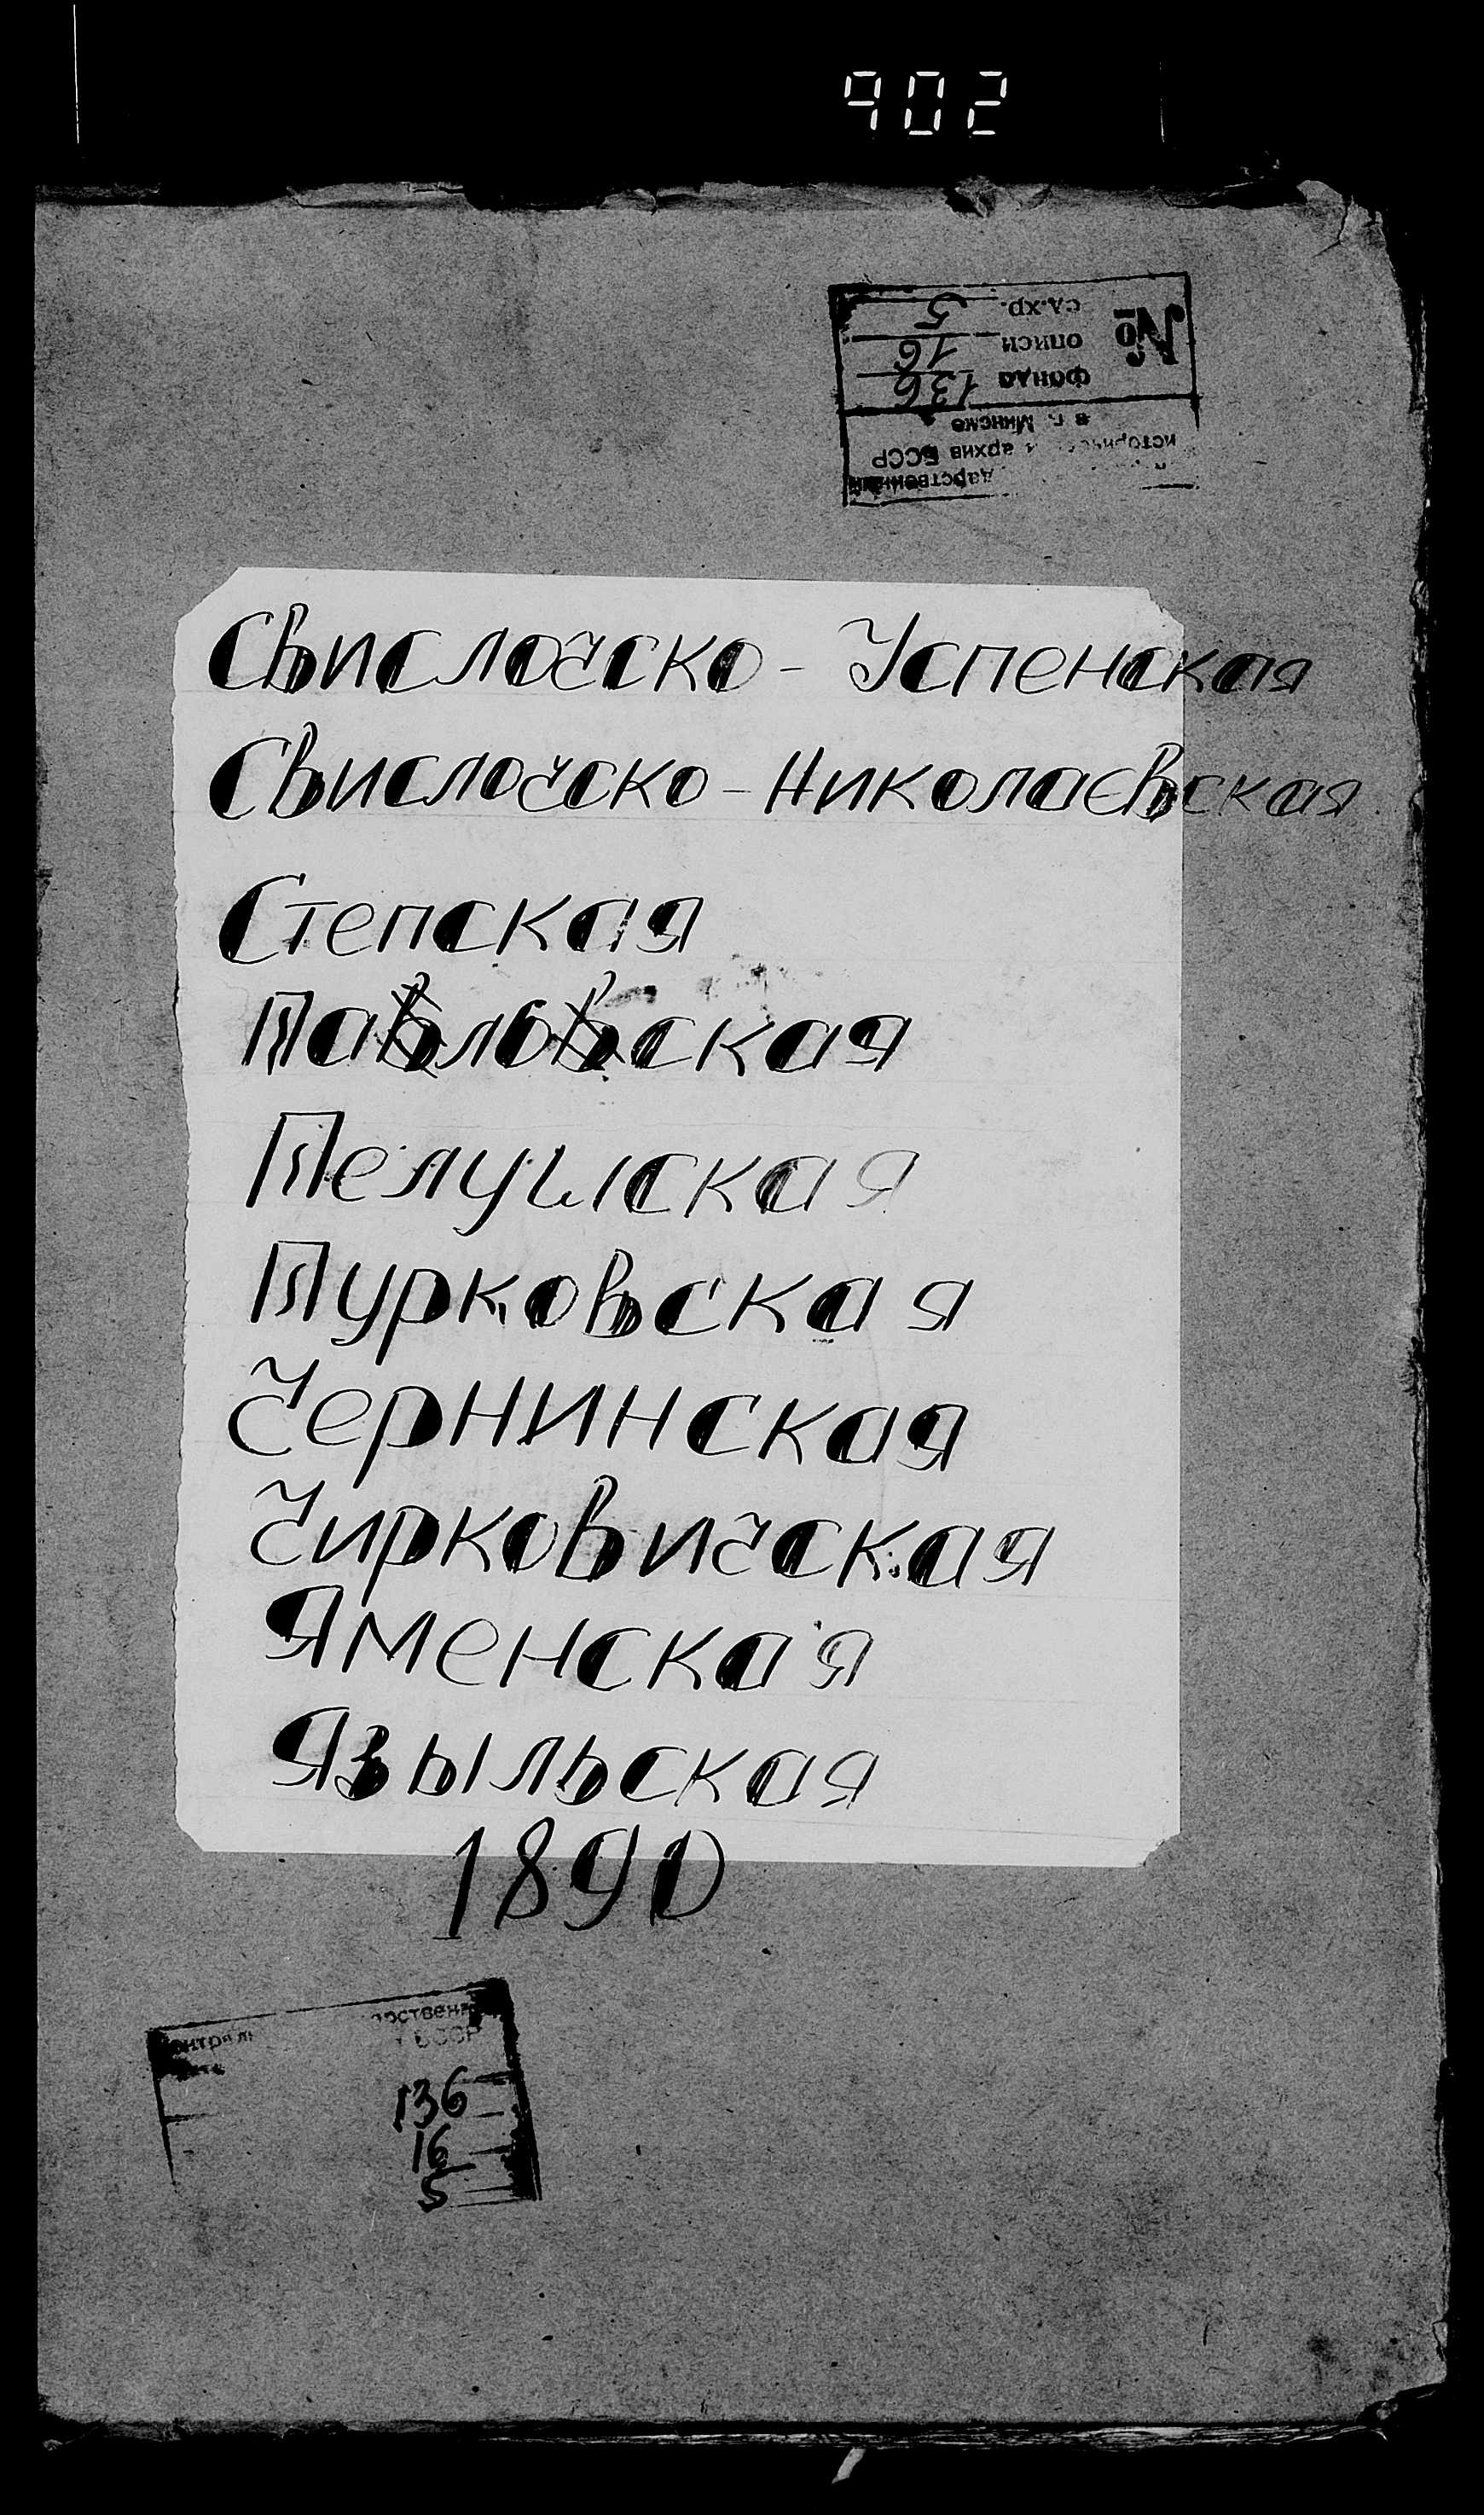 902
дарственный
архив БССР
в г. Минске
№ фонда 136
описи 16
ед.хр. 5
Свислочско - Успенская
Свислочско - Николаевская
Степская
Тавловская
Телушская
Турковская
Чернинская
Чирковичская
Яменская
Языльская
1890
БССР
136
16
5